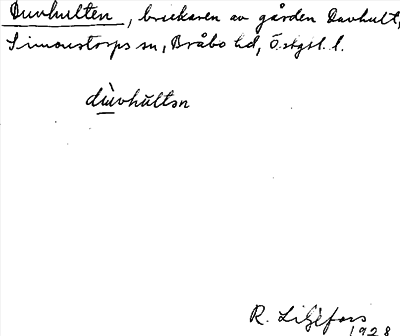 Duvhulten, brukaren av gården Duvhult,
Simonstorps sn, Bråbo hd, Östgtl. l.
dùvhŭltən
R. Liljefors
1928